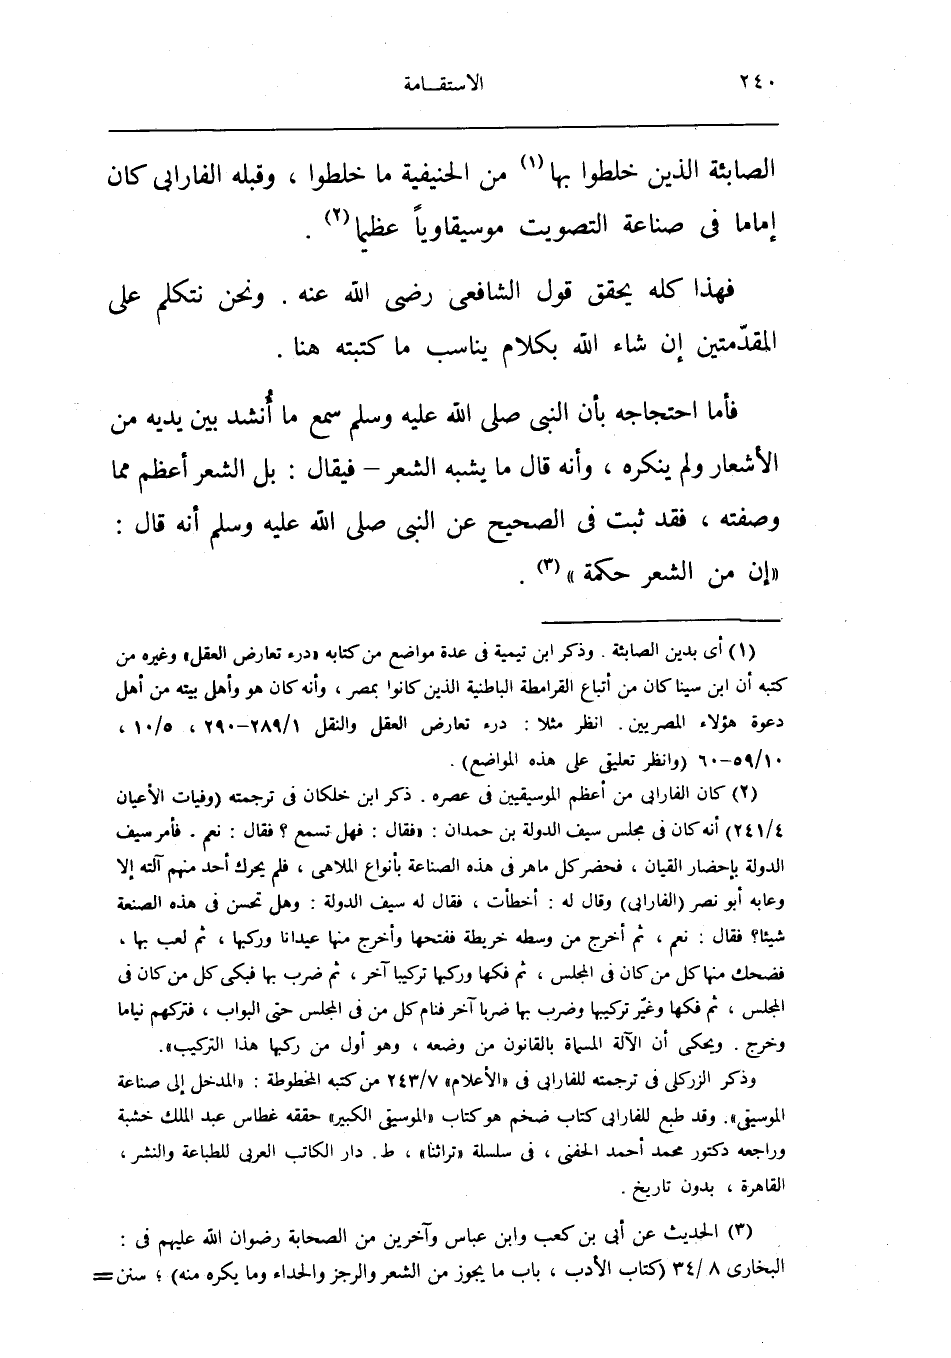 ٢٤٠ الاستقـامة
الصابئة الذين خلطوا بها(١) من الحنيفية ما خلطوا ، وقبله الفارابى كان
إماما فى صناعة التصويت موسيقاوياً عظيما(٢) .
فهذا كله يحقق قول الشافعى رضى الله عنه . ونحن نتكلم على
المقدّمتين إن شاء الله بكلام يناسب ما كتبته هنا .
فأما احتجاجه بأن النبى صلى الله عليه وسلم سمع ما أُنشد بين يديه من
الأشعار ولم ينكره ، وأنه قال ما يشبه الشعر – فيقال : بل الشعر أعظم مما
وصفته ، فقد ثبت فى الصحيح عن النبى صلى الله عليه وسلم أنه قال :
«إن من الشعر حكمة »(٣) .
(١) أى بدين الصابئة . وذكر ابن تيمية فى عدة مواضع من كتابه «درء تعارض العقل» وغيره من
كتبه أن ابن سينا كان من أتباع القرامطة الباطنية الذين كانوا بمصر ، وأنه كان هو وأهل بيته من أهل
دعوة هؤلاء المصريين . انظر مثلا : درء تعارض العقل والنقل ٢٨٩/١–٢٩٠ ، ١٠/٥ ،
٥٩/١٠–٦٠ (وانظر تعليقى على هذه المواضع) .
(٢) كان الفارابى من أعظم الموسيقيين فى عصره . ذكر ابن خلكان فى ترجمته (وفيات الأعيان
٢٤١/٤) أنه كان فى مجلس سيف الدولة بن حمدان : «فقال : فهل تسمع ؟ فقال : نعم . فأمر سيف
الدولة بإحضار القيان ، فحضر كل ماهر فى هذه الصناعة بأنواع الملاهى ، فلم يحرك أحد منهم آلته إلا
وعابه أبو نصر (الفارابى) وقال له : أخطأت ، فقال له سيف الدولة : وهل تحسن فى هذه الصنعة
شيئا؟ فقال : نعم ، ثم أخرج من وسطه خريطة ففتحها وأخرج منها عيدانا وركبها ، ثم لعب بها ،
فضحك منها كل من كان فى المجلس ، ثم فكها وركبها تركيبا آخر ، ثم ضرب بها فبكى كل من كان فى
المجلس ، ثم فكها وغيّر تركيبها وضرب بها ضربا آخر فنام كل من فى المجلس حتى البواب ، فتركهم نياما
وخرج . ويحكى أن الآلة المسماة بالقانون من وضعه ، وهو أول من ركبها هذا التركيب».
وذكر الزركلى فى ترجمته للفارابى فى «الأعلام» ٢٤٣/٧ من كتبه المخطوطة : «المدخل إلى صناعة
الموسيقى». وقد طبع للفارابى كتاب ضخم هو كتاب «الموسيقى الكبير» حققه غطاس عبد الملك خشبة
وراجعه دكتور محمد أحمد الحفنى ، فى سلسلة «تراثنا» ، ط. دار الكاتب العربى للطباعة والنشر ،
القاهرة ، بدون تاريخ .
(٣) الحديث عن أبى بن كعب وابن عباس وآخرين من الصحابة رضوان الله عليهم فى :
البخارى ٨ /٣٤ (كتاب الأدب ، باب ما يجوز من الشعر والرجز والحداء وما يكره منه) ؛ سنن =